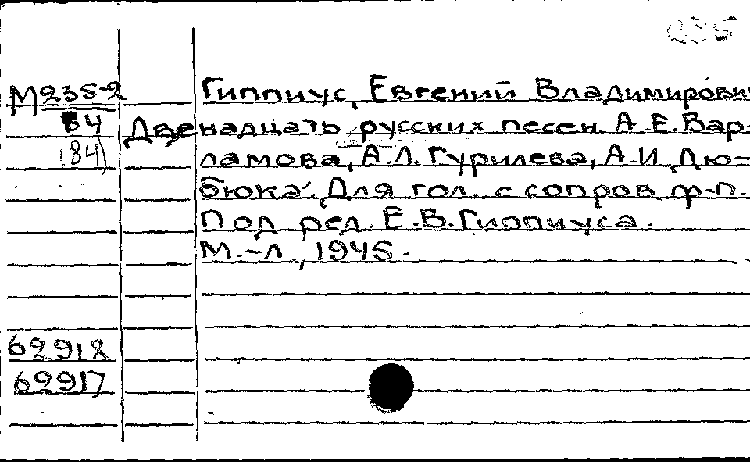 235
М235-2
84
(84)
Гиппиус, Евгений Владимирович
Двенадцать русских песен А.Е. Вар-
ламова, А.Л. Гурилева, А.И. Дю-
бюка. Для гол. с сопров. ф-п.
Под ред. Е.В. Гиппиуса.
М.-Л., 1945.
62918
62917